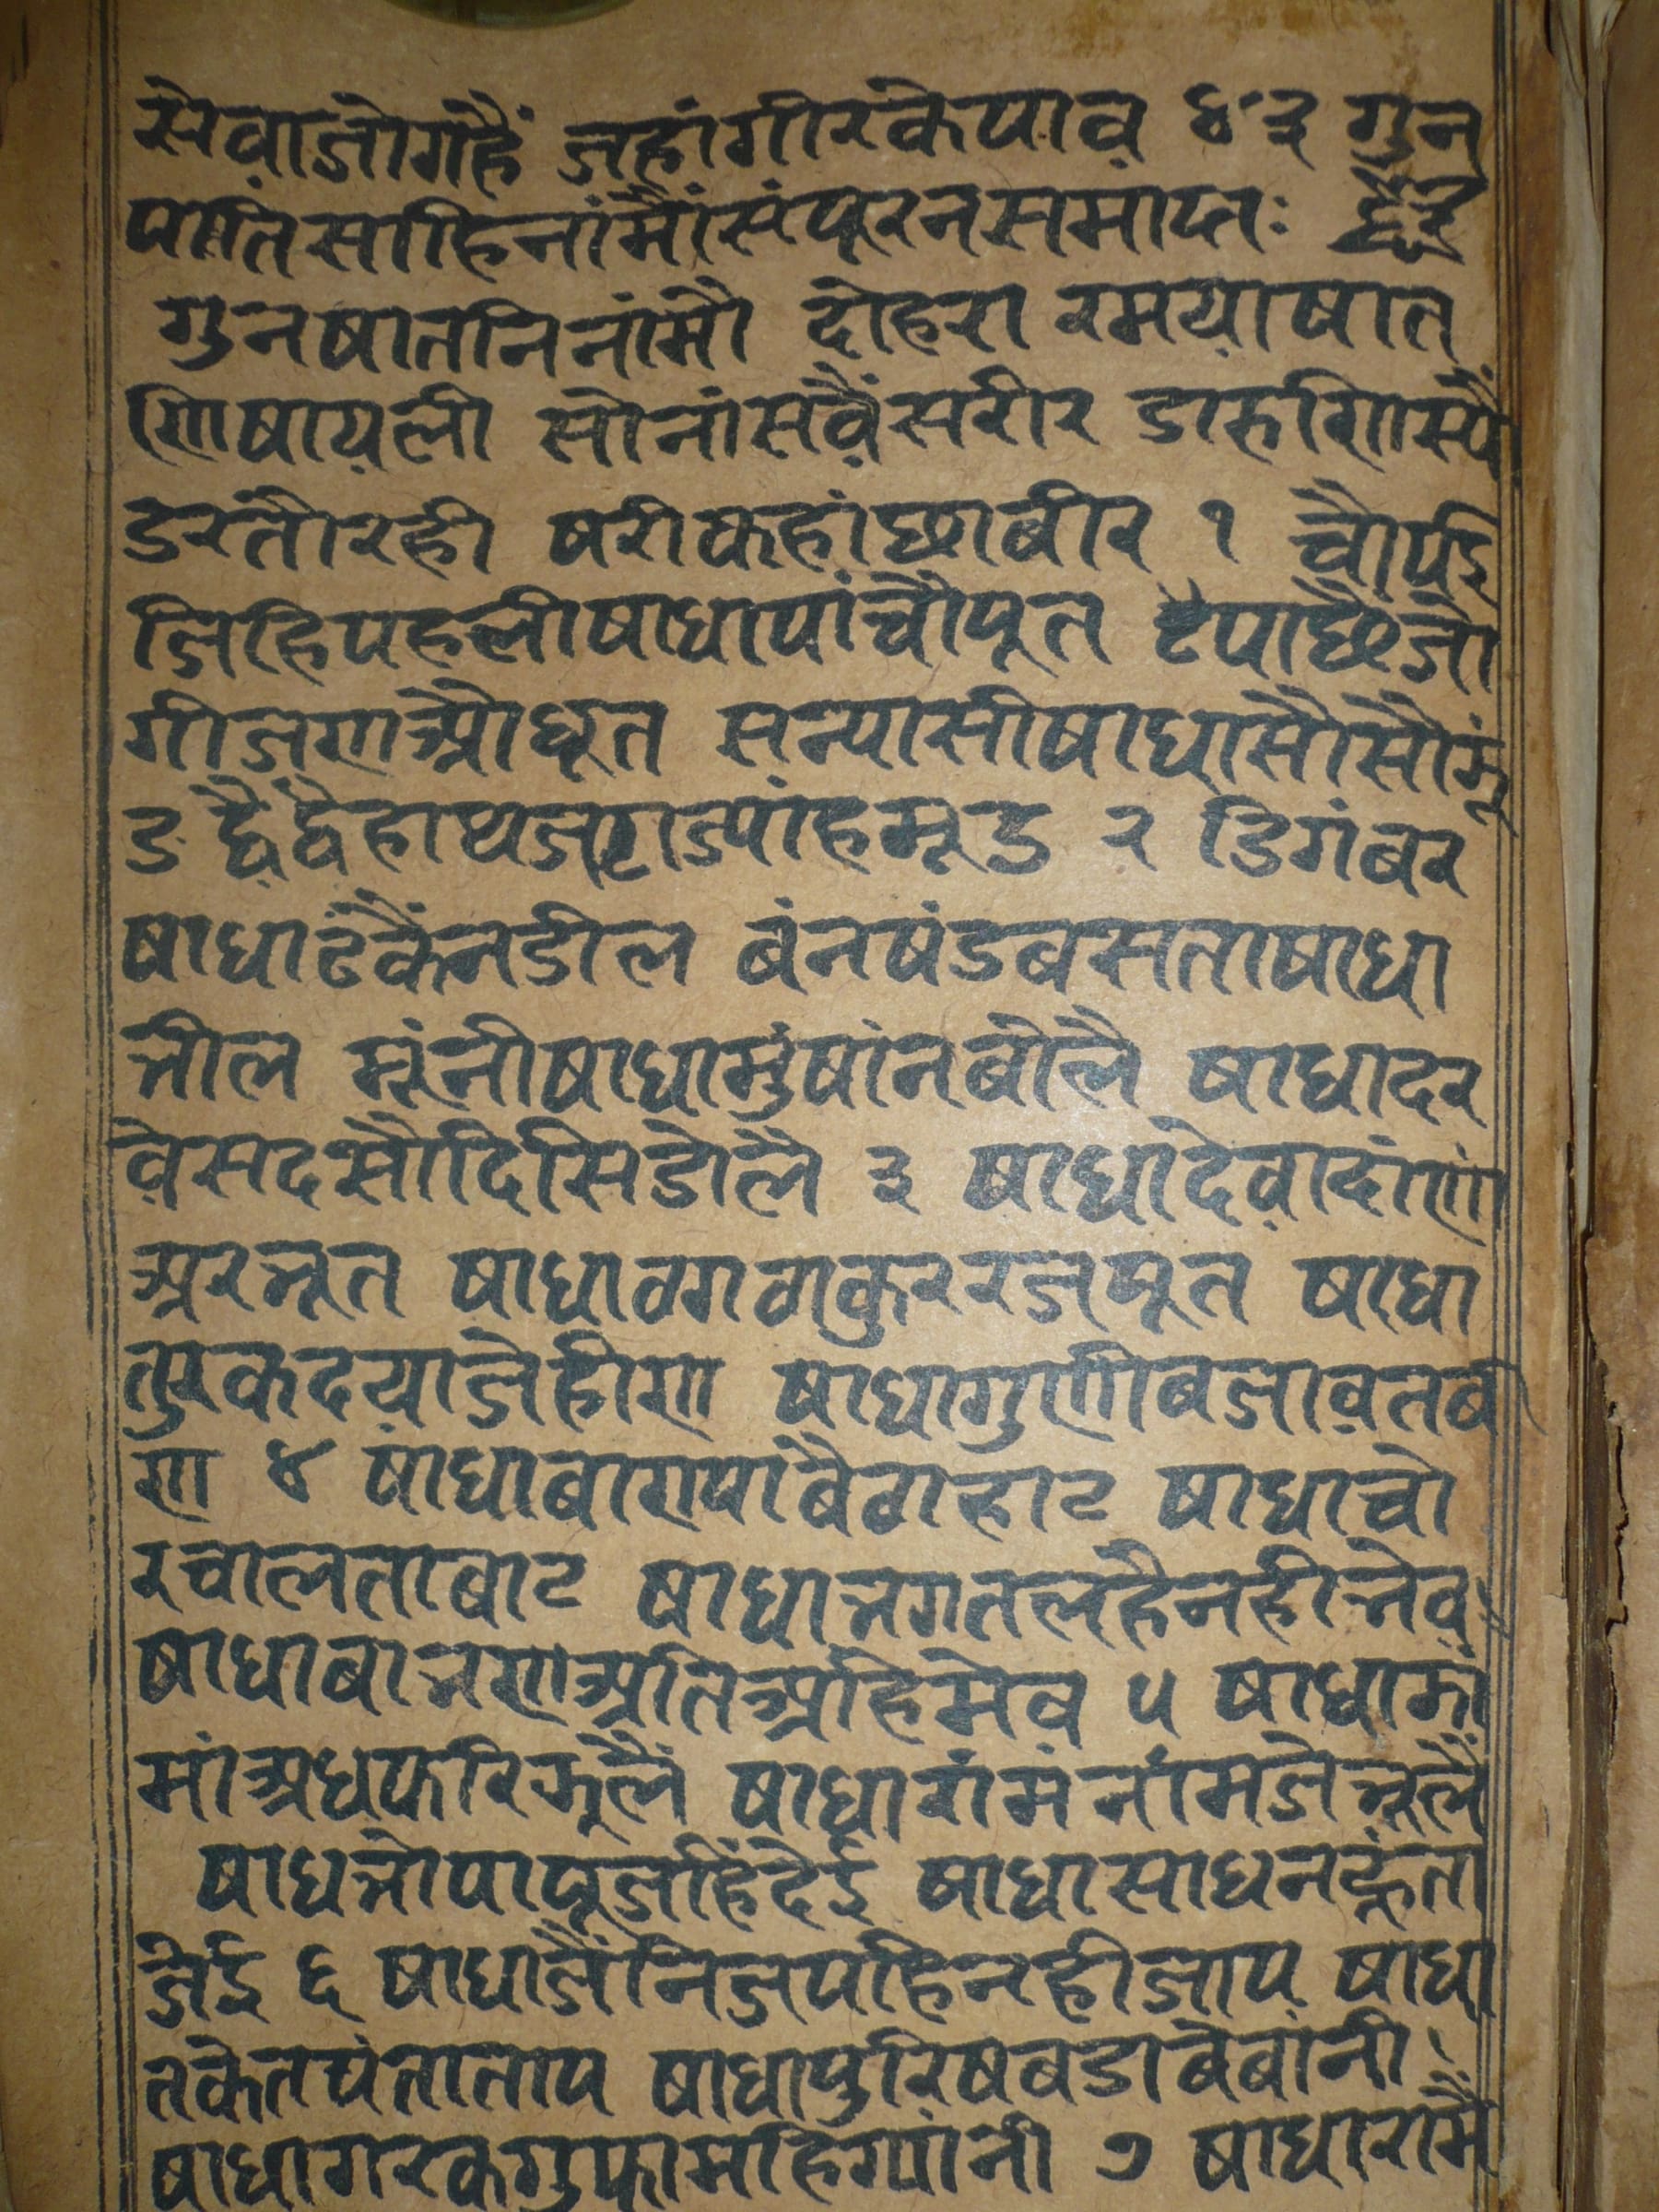 सेवाजोगहैं जहांगीरकेपाव ४३ गुन
पातिसाहिनांमौंसंपूरनसमाप्तः
गुनषातनिनांमौ दोहरा रमयाषात
णिषायली सोनांसवैंसरीर डाहणिस्यौं
डरतौरही षरीकहांछाबीर १ चौपई
जिहिपहलीषाधापांचौपूत पाछेजो
गीजणऔधूत सन्यासीषाधासौसौझूं
ड द्वैद्वैहाथजटाज्यांहमूड २ डिगंबर
षाधाटंकैंनडील बंनषंडबसताषाधा
भील मूंनीषाधामुंषांनबोलै षाधादर
वेसदसौंदिसिडोलै ३ षाधादेवादांणां
अरभूत षाधाठगठाकुररजपूत षाधा
तुरकदयाजेहीण षाधागुणीबजावतब
ण ४ षांधाबाणयांबैठाहाट षाधाचो
रचालताबाट षाधाभगतलहैनहीभेव
षाधाबाभणअतिअहिमेव ५ षाधाकां
मांअधफरिझूलैं षाधारांमनांमजेभूलैं
षाधभोपापूजहिंदेई षाधासाधनहूंता
जेई ६ षाधाजैंनिजपहिनहीजाप षाधा
तकेतपंताताप षाधापुरिषबडाबेबांनी
षाधागरकगुफामहिग्यांनी ७ षाधारामैं